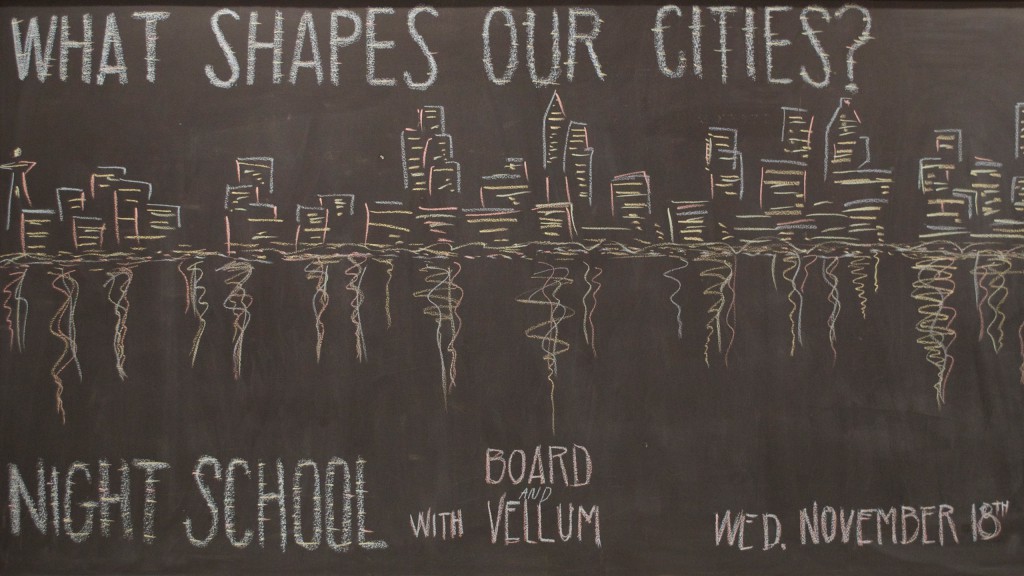 WHAT SHAPES OUR CITIES?
NIGHT SCHOOL
WITH
BOARD
AND
VELLUM
WED. NOVEMBER 18TH